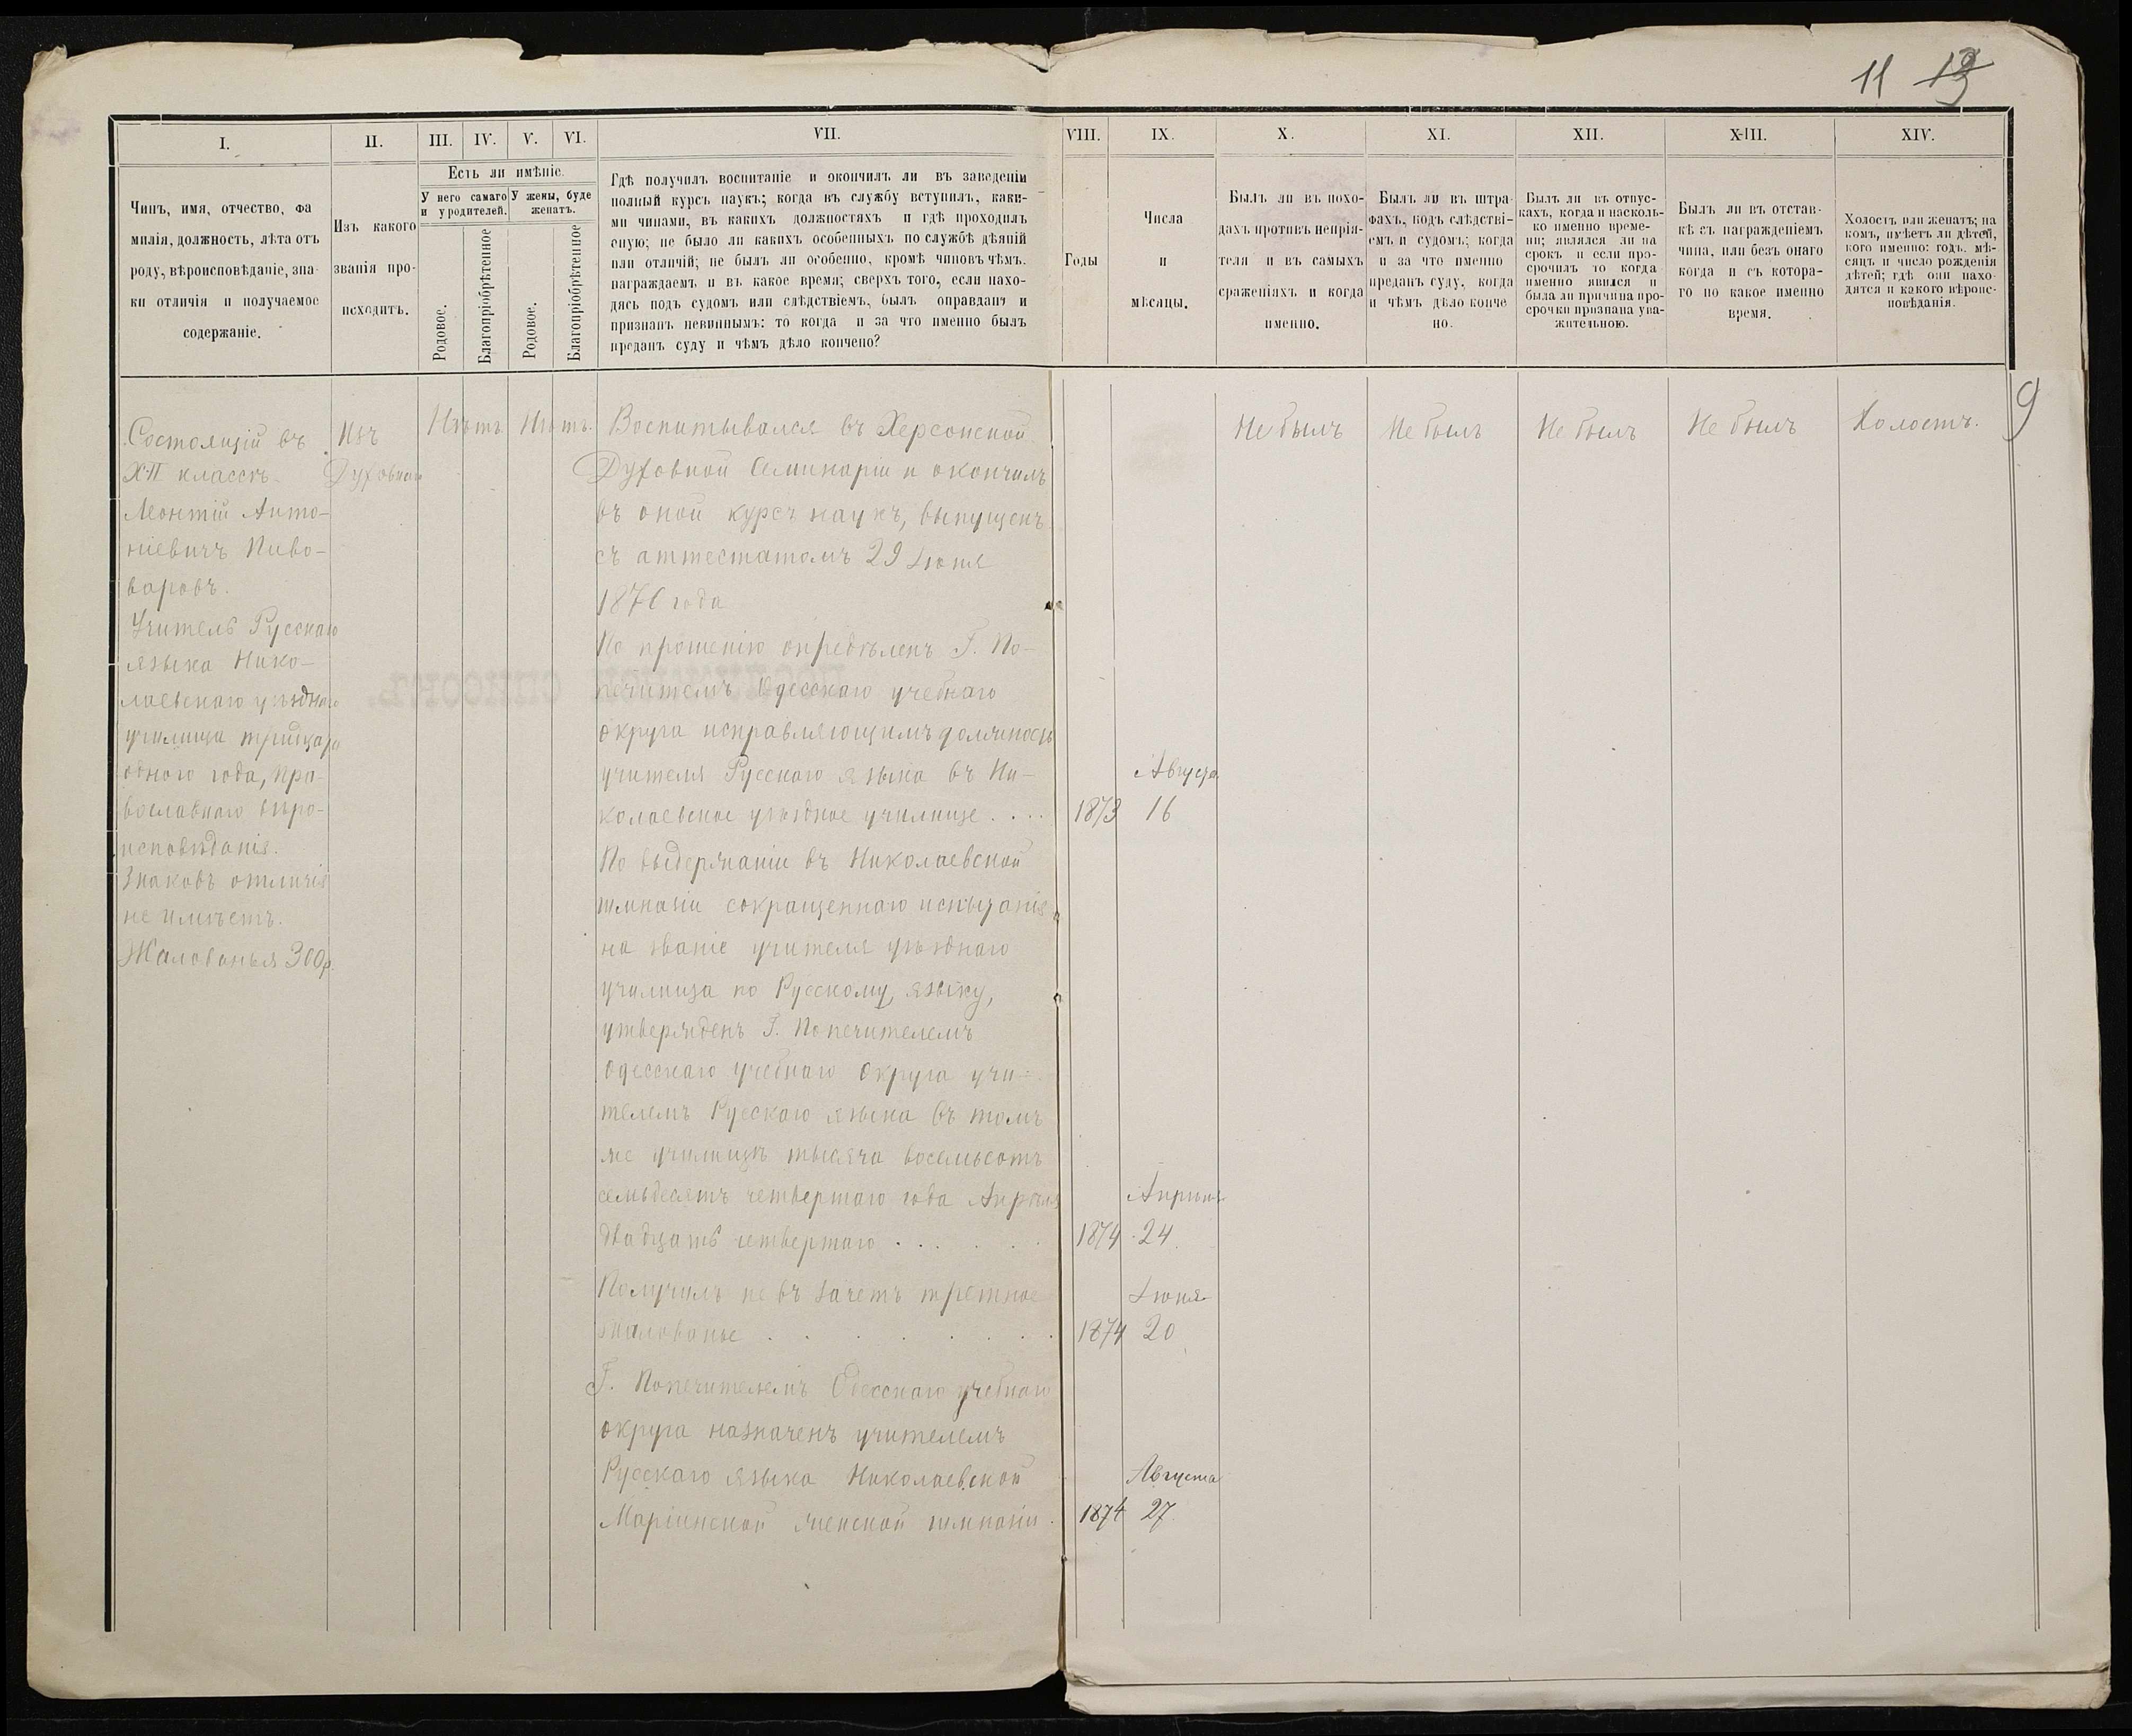 11 13
I.
II.
III.
IV.
V.
VI.
VII.
VIII.
IX.
X.
XI.
XII.
XIII.
XIV.
Чинъ, имя, отчество, фа
милія, должность, лѣта отъ
роду, вѣроисповѣданіе, зна-
ки отличія и получаемое
содержаніе.
Изъ какого
званія про-
исходитъ.
Есть ли имѣніе.
У него самаго
и у родителей.
У жены, буде
женатъ.
Родовое.
Благопріобрѣтенное
Родовое.
Благопріобрѣтенное
Гдѣ получилъ воспитаніе и окончилъ ли въ заведеніи
полный курсъ наукъ; когда въ службу вступилъ, каки-
ми чинами, въ какихъ должностяхъ и гдѣ проходилъ
оную; не было ли какихъ особенныхъ по службѣ дѣяній
или отличій; не былъ ли особенно, кромѣ чиновъ чѣмъ.
награждаемъ и въ какое время; сверхъ того, если нахо-
дясь подъ судомъ или слѣдствіемъ, былъ оправданъ и
признанъ невиннымъ: то когда и за что именно былъ
преданъ суду и чѣмъ дѣло кончено?
Годы
Числа
и
мѣсяцы.
Былъ ли въ похо-
дахъ противъ непрія-
теля и въ самыхъ
сраженіяхъ и когда
именно.
Былъ ли въ штра-
фахъ, подъ слѣдстві-
емъ и судомъ; когда
и за что именно
преданъ суду, когда
и чѣмъ дѣло конче
но.
Былъ ли въ отпус-
кахъ, когда и насколь-
ко именно време-
ни; являлся ли на
срокъ и если про-
срочилъ то когда
именно явился и
была ли причина про-
срочки признана ува-
жительною.
Былъ ли въ отстав-
кѣ съ награжденіемъ
чина, или безъ онаго
когда и съ котора-
го по какое именно
время.
Холостъ или женатъ; на
комъ, имѣетъ ли дѣтей,
кого именно: годъ, мѣ-
сяцъ и число рожденія
дѣтей; гдѣ они нахо-
дятся и какого вѣроис-
повѣданія.
Состоящій въ
XII классѣ
Леонтій Анто-
ніевичъ Пиво-
варовъ.
Учитель Русскаго
языка Нико-
лаевскаго уѣзднаго
училища тридцати
одного года, пра-
вославнаго вѣро-
исповѣданія.
Знаковъ отличія
не имѣетъ.
Жалованья 300 р.
Изъ
Духовнаго
Нѣтъ
Нѣтъ.
Воспитывался въ Херсонской
Духовной Семинаріи и окончилъ
въ оной курсъ наукъ, выпущенъ
съ аттестатомъ 29 Іюня
года
По прошенію опредѣленъ Г. По-
печителемъ Одесскаго учебнаго
округа исправляющимъ должность
учителя Русскаго языка въ Ни-
колаевское уѣздное училище . . . .
1873
Августа
16
По выдержаніи въ Николаевской
гимназіи сокращеннаго испытанія
на званіе учителя уѣзднаго
училища по Русскому языку,
утвержденъ Г. Попечителемъ
Одесскаго учебнаго округа учи-
телемъ Русскаго языка въ томъ
же училищѣ тысяча восемьсотъ
семьдесятъ четвертаго года Апрѣля
двадцать четвертаго . . . . .
1874
Апрѣля
24.
Получилъ не въ зачетъ третное
жалованье . . . . . . .
1874
Іюня
20
Г. Попечителемъ Одесскаго учебнаго
округа назначенъ учителемъ
Русскаго языка Николаевской
Маріинской женской гимназіи .
1874
Августа
27.
Не былъ
Не былъ
Не былъ
Не былъ
Холостъ.
9